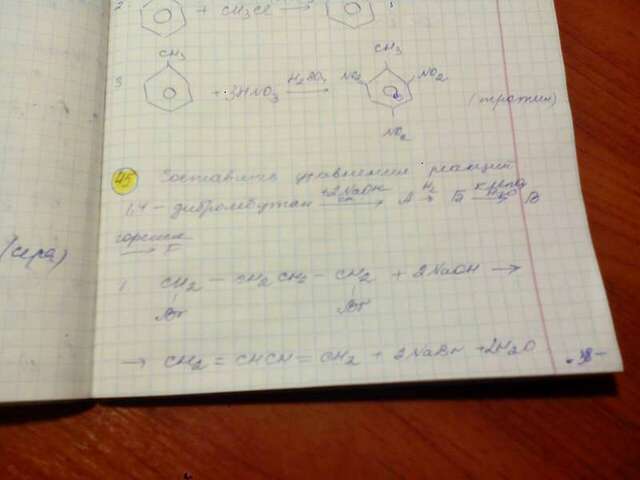 2. + CH3Cl →
3 CH3
+ 3HNO3 H2SO4 →
CH3
NO2 NO2
NO2
(тротил)
45 Составить уравнения реакций
1,4 - дибромбутан +2NaOH → А H2 → Б KMnO4 H2O → В
горение → Г
(сера)
1 CH2 - CH2 CH2 - CH2 + 2NaOH →
Br Br
→ CH2 = CHCH = CH2 + 2NaBr + 2H2O